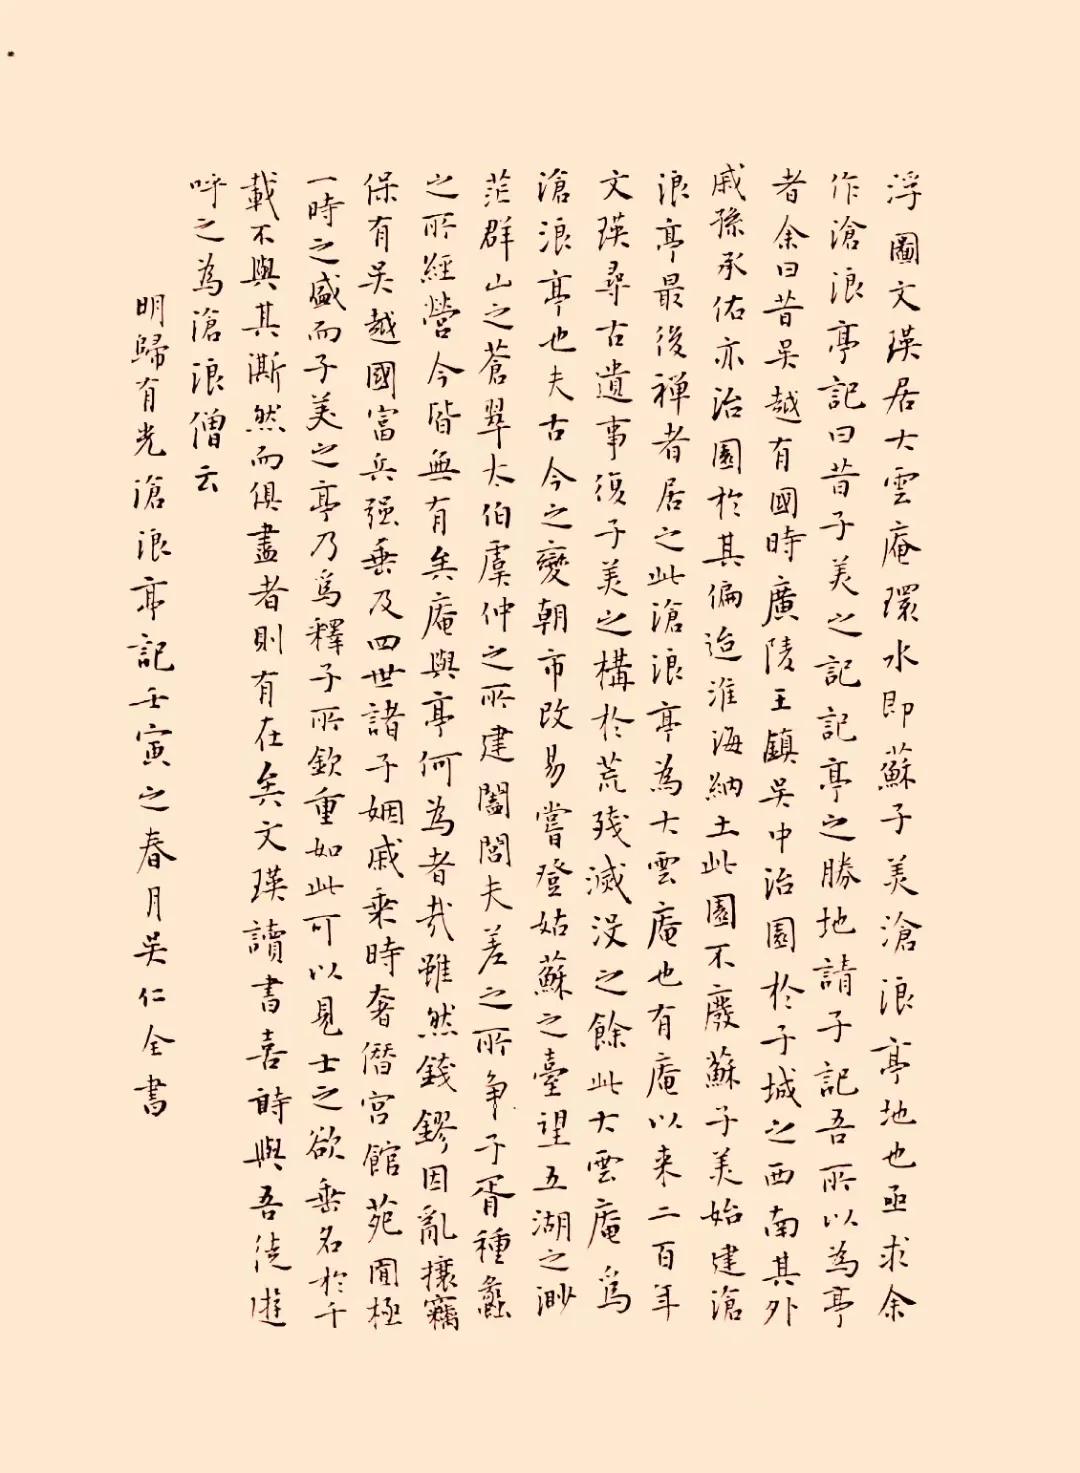 浮圖文瑛居大雲庵環水即蘇子美滄浪亭地也亟求余
作滄浪亭記曰昔子美之記記亭之勝地請子記吾所以為亭
者余曰昔吳越有國時廣陵王鎮吳中治園於子城之西南其外
戚孫承佑亦治園於其偏迨淮海納土此園不廢蘇子美始建滄
浪亭最後禅者居之此滄浪亭為大雲庵也有庵以来二百年
文瑛尋古遺事復子美之構於荒残滅没之餘此大雲庵為
滄浪亭也夫古今之變朝市改易嘗登姑蘇之臺望五湖之渺
茫群山之蒼翠太伯虞仲之所建闔閭夫差之所争子胥種蠡
之所經營今皆無有矣庵與亭何為者哉雖然錢鏐因亂攘竊
保有吳越國富兵强垂及四世諸子姻戚乘時奢僭宮館苑囿極
一時之盛而子美之亭乃為釋子所欽重如此可以見士之欲垂名於千
載不與其澌然而俱盡者則有在矣文瑛讀書喜詩與吾徒遊
呼之為滄浪僧云
明歸有光滄浪亭記壬寅之春月吳仁全書